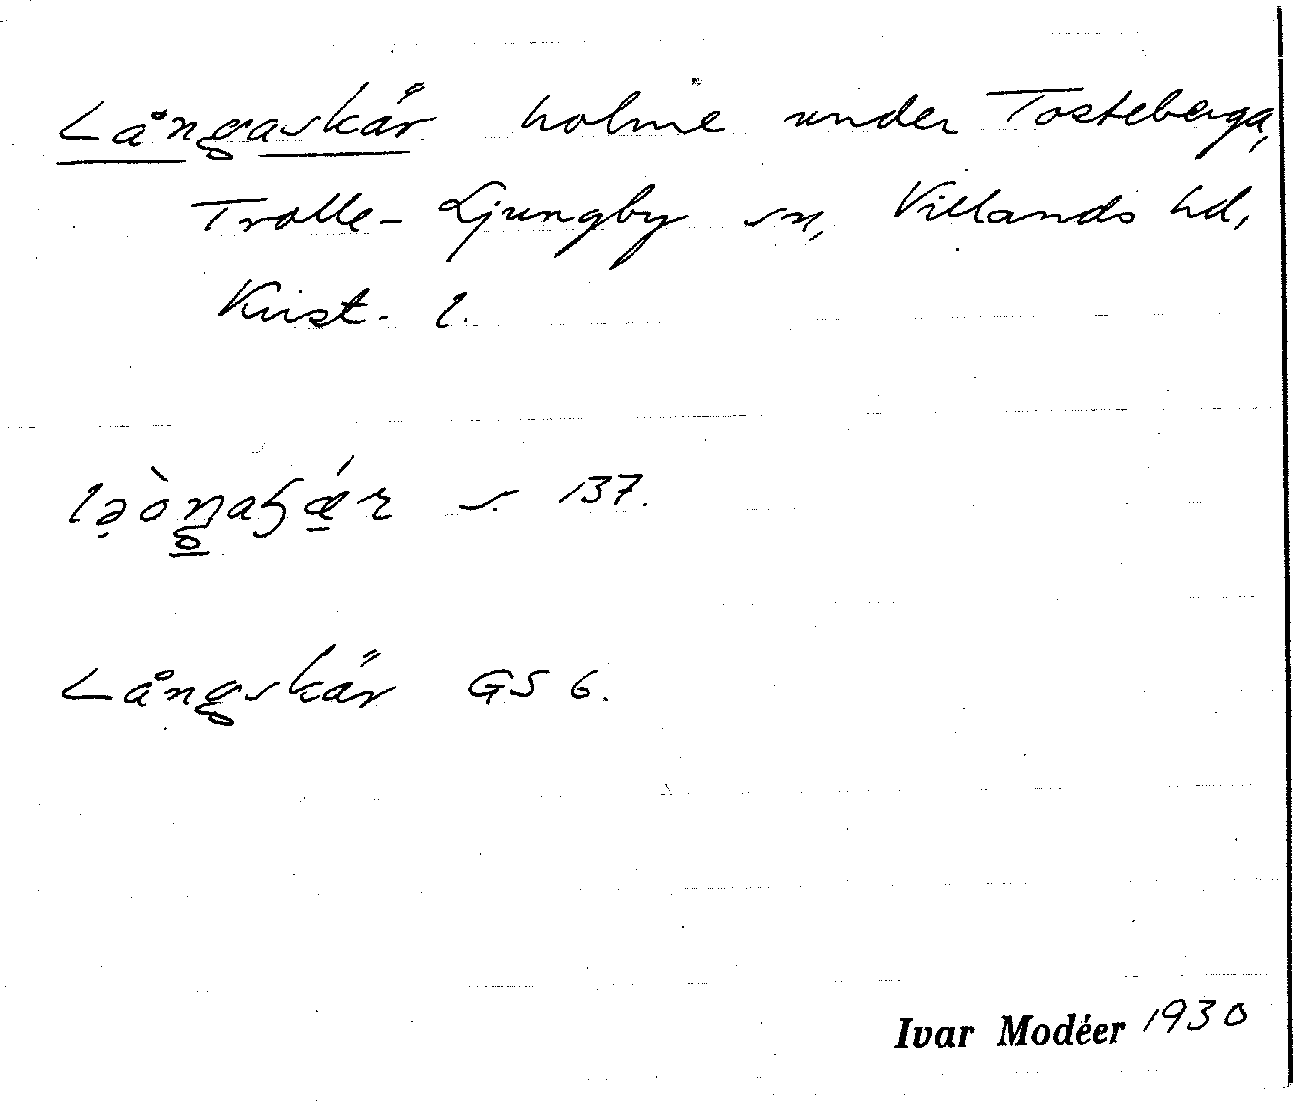 Långaskär holme under Tosteberga,
Trolle-Ljungby sn, Villands hd,
Krist. l.
s. 137.
Långskär GS 6.
Ivar Modéer 1930